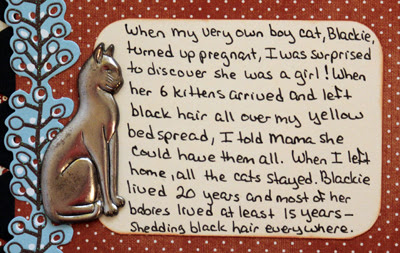 When my very own boy cat, Blackie,
turned up pregnant, I was surprised
to discover she was a girl! When
her 6 kittens arrived and left
black hair all over my yellow
bedspread, I told Mama she
could have them all. When I left
home, all the cats stayed. Blackie
lived 20 years and most of her
babies lived at least 15 years—
shedding black hair everywhere.